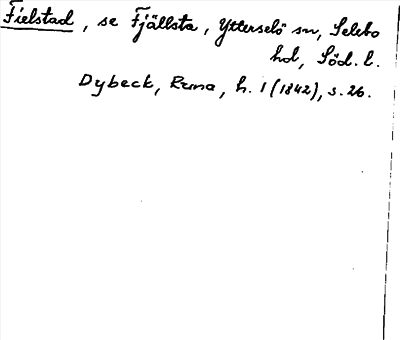 Fielstad, se Fjällsta, Ytterselö sn, Selebo
hd, Söd. l.
Dybeck, Runa, h. 1 (1842), s. 26.